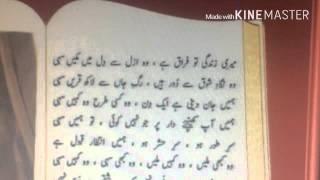 Made with KINEMASTER
میری زندگی تو فراق ہے ، وہ ازل سے دل میں مکیں سہی
وہ نگاہ شوق سے دور ہیں ، رگ جاں سے لاکھ قریں سہی
ہمیں جان دینی ہے ایک دن ، وہ کسی طرح وہ کہیں سہی
ہمیں آپ کھینچئے دار پر جو نہیں کوئی ، تو ہمیں سہی
سر طور ہو ، سر حشر ہو ، ہمیں انتظار قبول ہے
وہ کبھی ملیں ، وہ کہیں ملیں ، وہ کبھی سہی ، وہ کہیں سہی